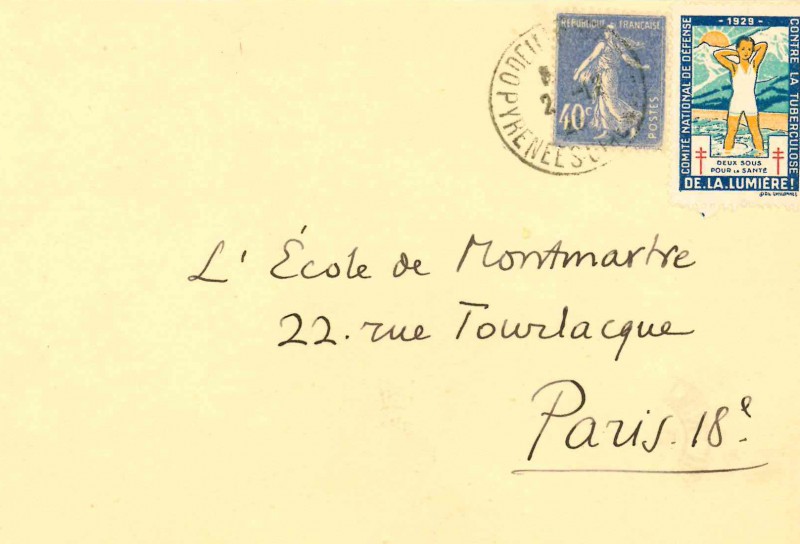 RÉPUBLIQUE FRANÇAISE
40c
POSTES
PYRENEES
- 1929 -
COMITÉ NATIONAL DE DÉFENSE
CONTRE LA TUBERCULOSE
DEUX SOUS
POUR LA SANTÉ
DE.LA.LUMIÈRE!
L' École de Montmartre
22. rue Tourlacque
Paris. 18e.